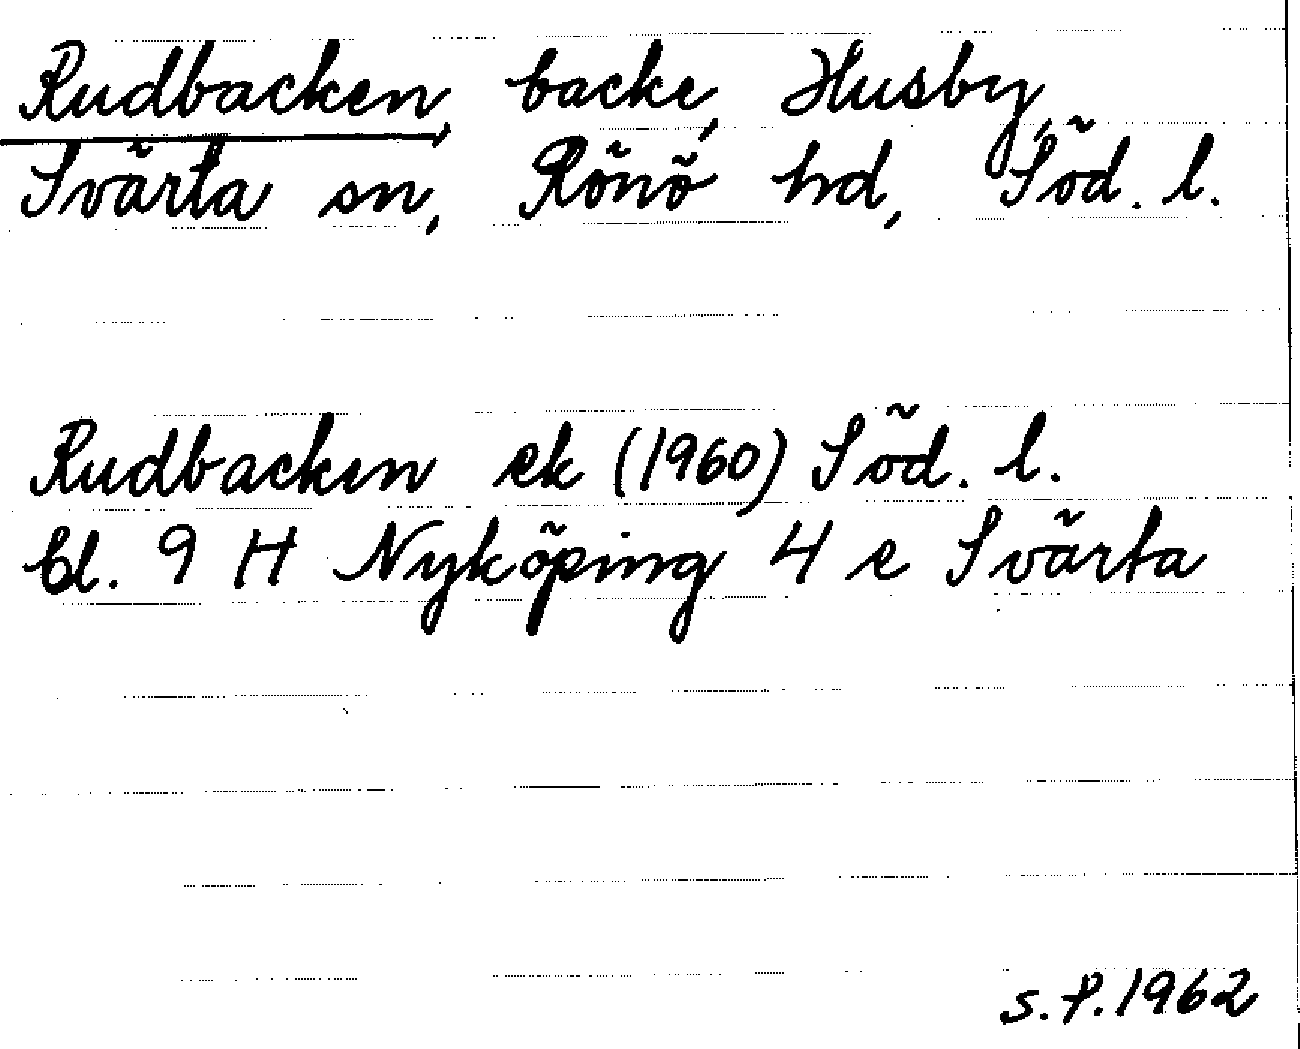 Rudbacken, backe, Husby,
Svärta sn, Rönö hd, Söd. l.
Rudbacken ek (1960) Söd. l.
bl. 9 H Nyköping 4 e Svärta
S.P. 1962